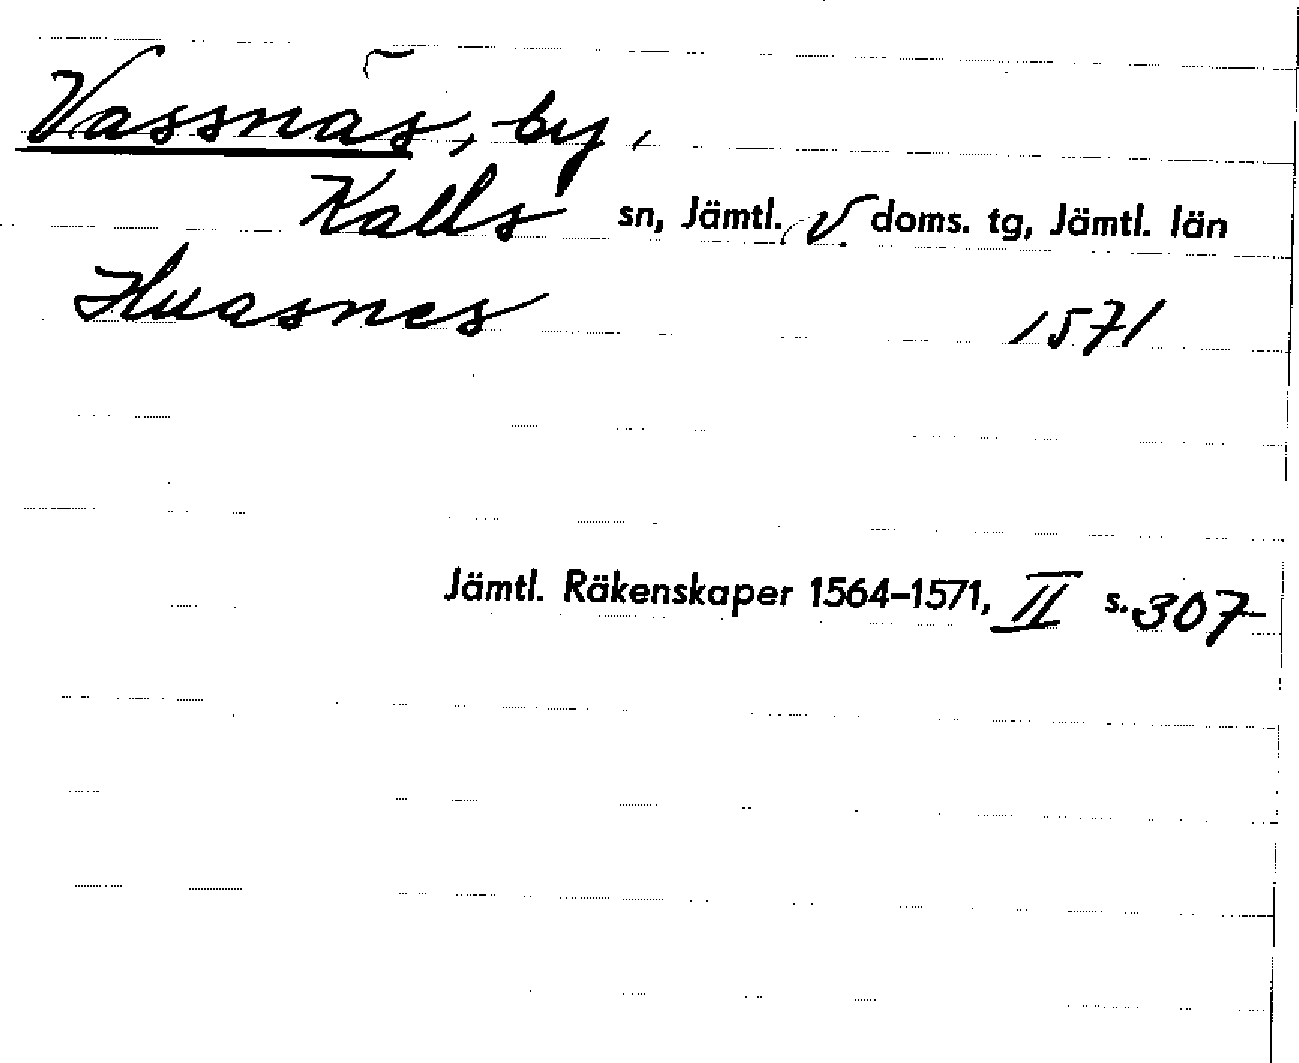 Vassnäs, by,
Kalls sn, Jämtl. v. doms. tg, Jämtl. län
Huasnes 1571
Jämtl. Räkenskaper 1564–1571, II s. 307